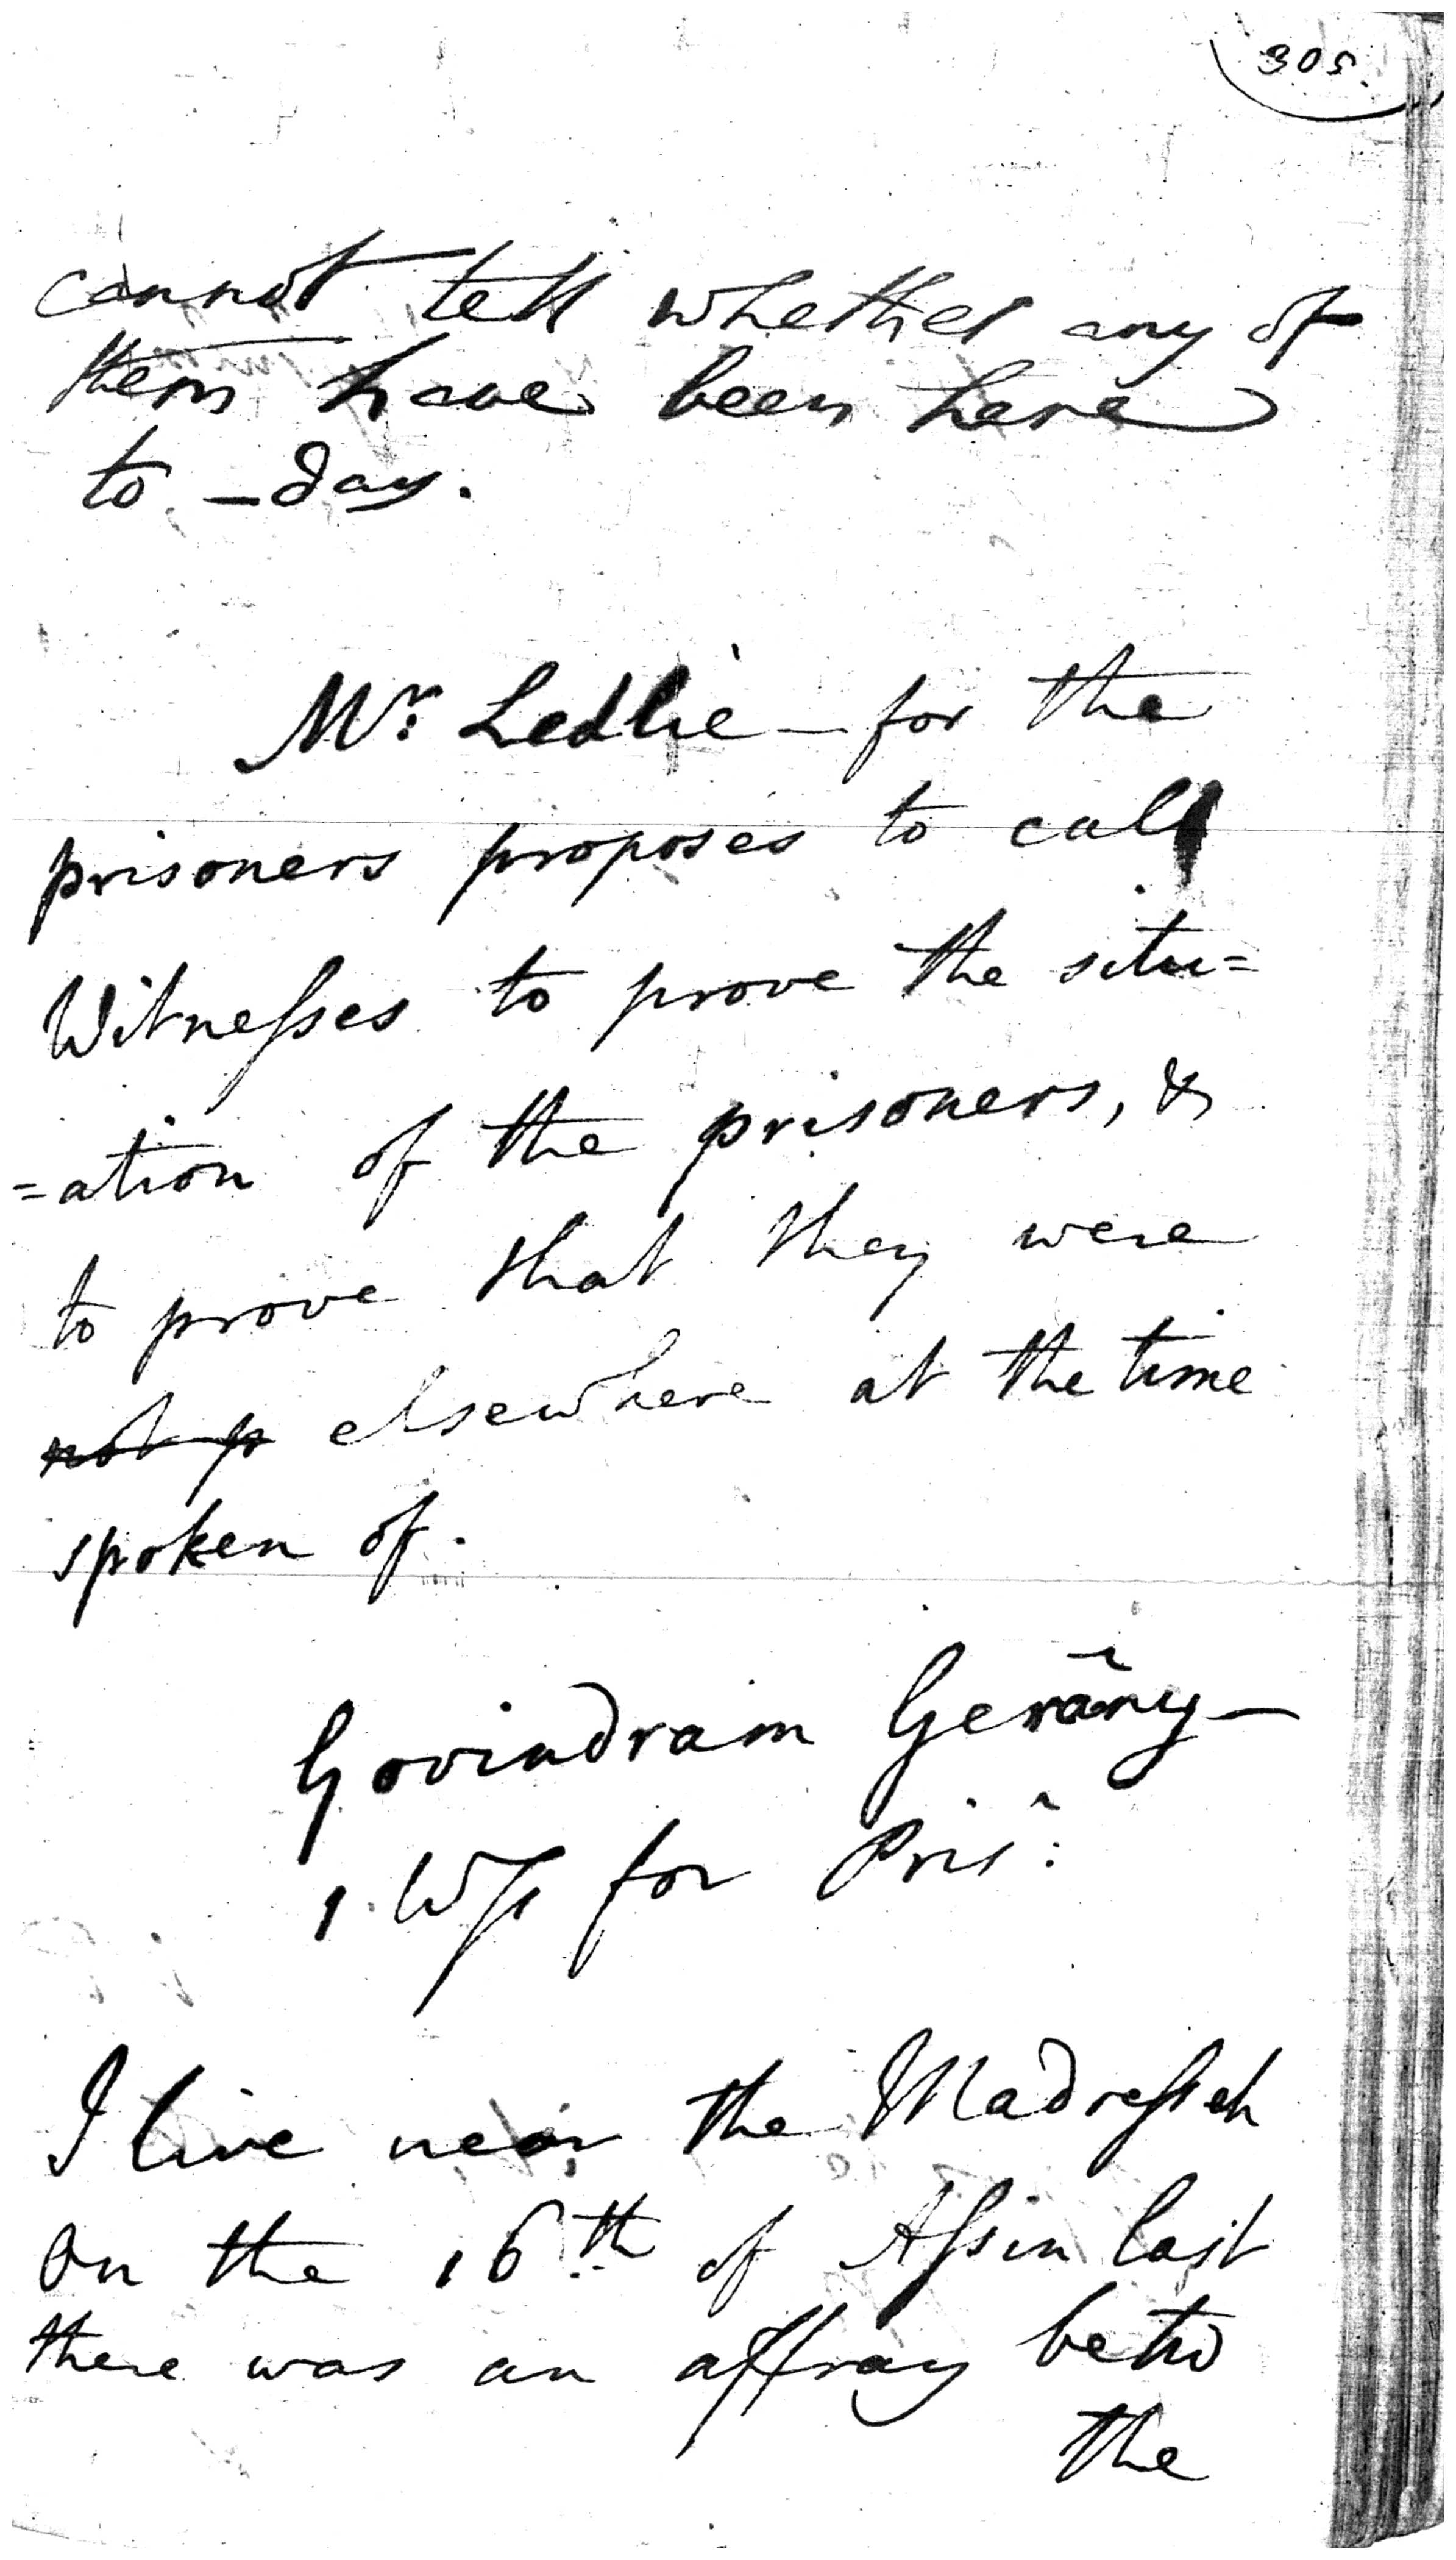 305.
cannot tell whether any of
them have been here
to-day.
Mr. Ledlie - for the
prisoners proposes to call
Witnesses to prove the situ=
=ation of the prisoners, &
to prove that they were
not p elsewhere at the time
spoken of.
Govindram Gerāny -
1. Wss for Pris:
I live near the Madresseh
On the 16th of Assin last
there was an affray betw
the